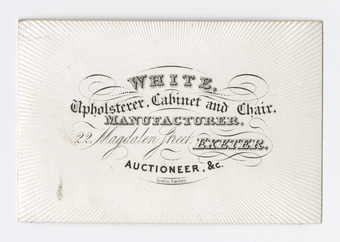 WHITE,
Upholsterer, Cabinet and Chair,
MANUFACTURER,
22, Magdalen Street, EXETER.
AUCTIONEER, &c.